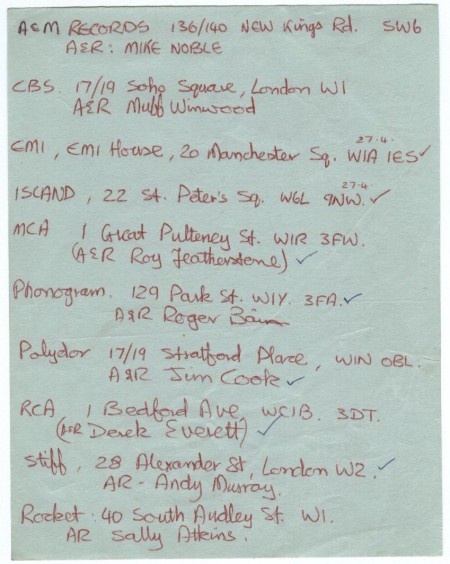 A&M RECORDS 136/140 NEW Kings Rd. SW6
A&R: MIKE NOBLE
CBS. 17/19 Soho Square, London W1
A&R Muff Winwood
27.4.
EMI, EMI House, 20 Manchester Sq. W1A 1ES ✓
27.4
ISLAND, 22 St. Peter's Sq. W6L 9NW. ✓
MCA 1 Great Pulteney St. W1R 3FW.
(A&R Roy Featherstone) ✓
Phonogram. 129 Park St. W1Y. 3FA. ✓
A&R Roger Bain
Polydor 17/19 Stratford Place, W1N 0BL.
A&R Jim Cook ✓
RCA 1 Bedford Ave, WC1B. 3DT.
(A&R Derek Everett) ✓
Stiff, 28 Alexander St, London W2. ✓
AR - Andy Murray.
Rocket: 40 South Audley St. W1.
AR Sally Atkins.